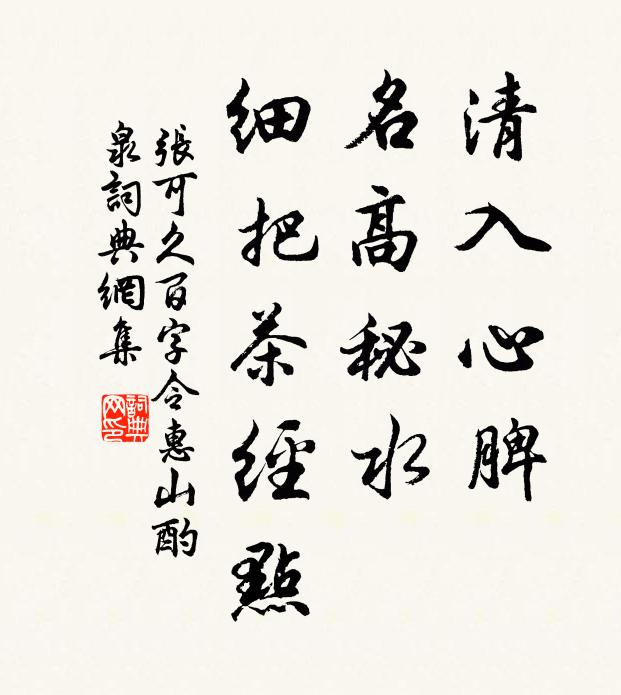 清入心脾
名高秘水
細把茶經點
張可久百字令惠山酌
泉詞典網集
詞典
网印